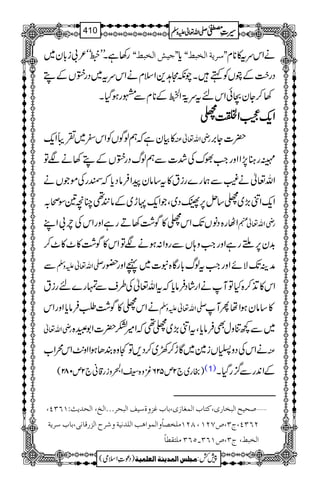 سیرتِ مصطفی صلی اللہ تعالیٰ علیہ وسلم 410
نے اس سریہ کا نام ”سریة الخبط“ یا ”جیش الخبط“ رکھا ہے۔ ”خبط“ عربی زبان میں
درخت کے پتوں کو کہتے ہیں۔ چونکہ مجاہدین اسلام نے اس سریہ میں درختوں کے پتے
کھا کر جان بچائی اس لئے یہ سریۃ الخبط کے نام سے مشہور ہو گیا۔
ایک عجیب الخلقت مچھلی
حضرت جابر رضی اللہ تعالیٰ عنہ کا بیان ہے کہ ہم لوگوں کو اس سفر میں تقریباً ایک
مہینہ رہنا پڑا اور جب بھوک کی شدت سے ہم لوگ درختوں کے پتے کھانے لگے تو
اللہ تعالیٰ نے غیب سے ہمارے رزق کا یہ سامان پیدا فرما دیا کہ سمندر کی موجوں نے
ایک اتنی بڑی مچھلی ساحل پر پھینک دی، جو ایک پہاڑی کے مانند تھی چنانچہ تین سو صحابہ
رضی اللہ تعالیٰ عنہم اٹھارہ دنوں تک اس مچھلی کا گوشت کھاتے رہے اور اس کی چربی اپنے
بدن پر ملتے رہے اور جب وہاں سے روانہ ہونے لگے تو اس کا گوشت کاٹ کاٹ کر
مدینہ تک لائے اور جب یہ لوگ بارگاہ نبوت میں پہنچے اور حضور صلی اللہ تعالیٰ علیہ وسلم سے
اس کا تذکرہ کیا تو آپ نے ارشاد فرمایا کہ یہ اللہ تعالیٰ کی طرف سے تمہارے لئے رزق
کا سامان ہوا تھا پھر آپ صلی اللہ تعالیٰ علیہ وسلم نے اس مچھلی کا گوشت طلب فرمایا اور اس
میں سے کچھ تناول بھی فرمایا، یہ اتنی بڑی مچھلی تھی کہ امیر لشکر حضرت ابوعبیدہ رضی اللہ تعالیٰ
عنہ نے اس کی دو پسلیاں زمین میں گاڑ کر کھڑی کر دیں تو کجاوہ بندھا ہوا اونٹ اس محراب
کے اندر سے گزر گیا۔ (1) (بخاری ج۲ ص۶۲۵ غزوہ سیف البحر و زرقانی ج۲ ص۲۸۰)
صحیح البخاری، کتاب المغازی، باب غزوة سیف البحر...الخ، الحدیث:٤٣٦١،
٤٣٦٢، ج۳، ص۱۲۷، ۱۲۸ ملخصاً والمواهب اللدنیة وشرح الزرقانی، باب سریة
الخبط، ج۳، ص۳٦۱۔۳٦۵ ملتقطاً
پیش کش: مجلس المدینة العلمیة (دعوت اسلامی)